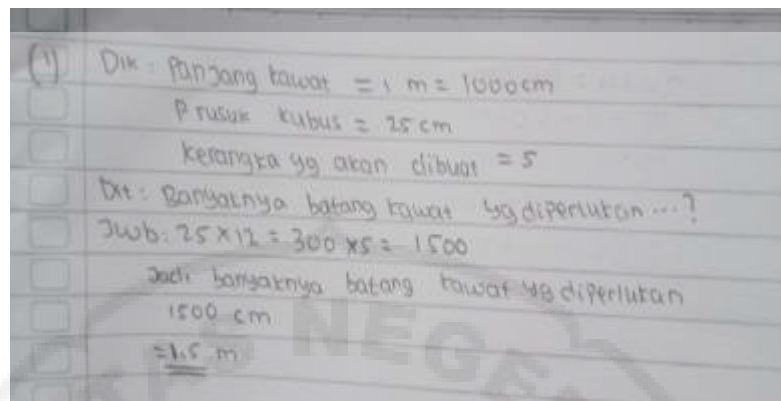 (1) Dik : Panjang kawat = 1 m = 1000 cm
P rusuk kubus = 25 cm
Kerangka yg akan dibuat = 5
Dit : Banyaknya batang kawat yg diperlukan ... ?
Jwb : 25 x 12 = 300 x 5 = 1500
Jadi banyaknya batang kawat yg diperlukan
1500 cm
= 1,5 m
NEGE